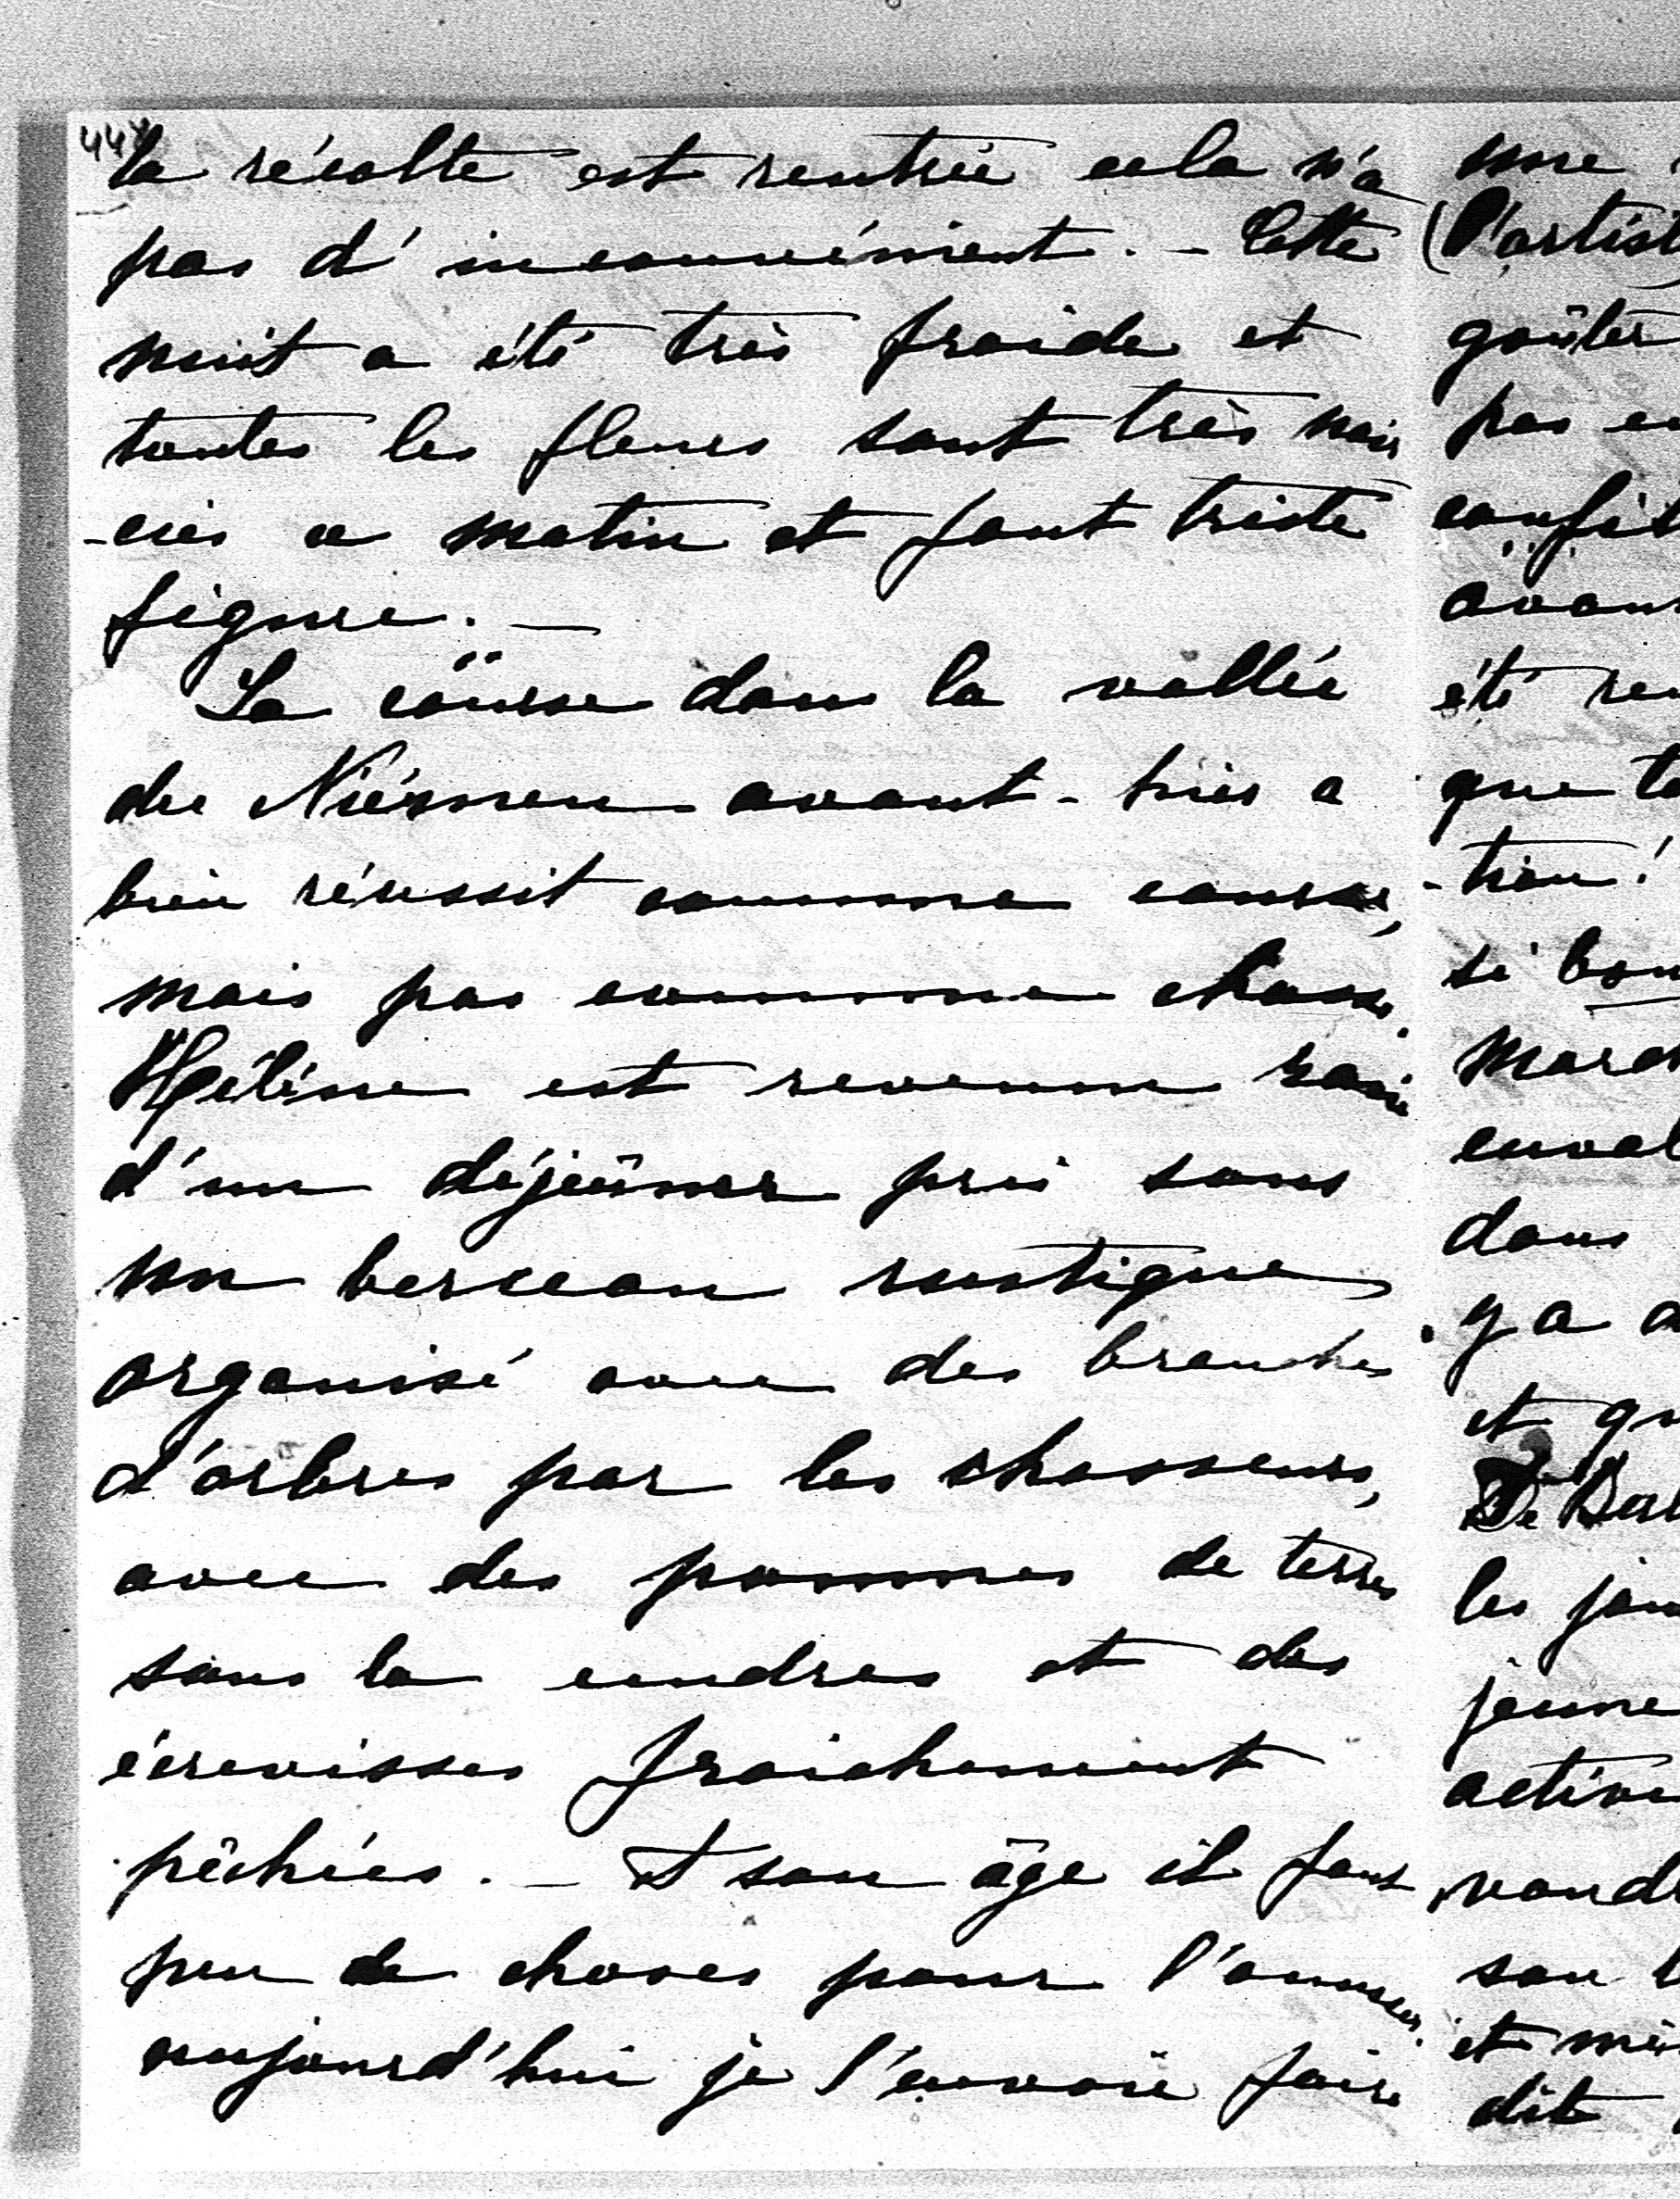 44
la récolte est rentrée cela n'a
pas d'inconvénient. - Cette
nuit a été très froide et
toutes les fleurs sont très noir
-cies ce matin et font triste
figure. —
La course dans la vallée
du Niémen avant-hier a
bien réussit comme course,
mais pas comme chasse.
Hélène est revenue ravie
d'un déjeûner pris sous
un berceau rustique
organisé avec des branches
d'arbres par les chasseurs,
avec des pommes de terres
sous la cendres et des
écrevisses fraichement
pêchées. - A son âge il faut
peu de choses pour l'amuser.
aujourd'hui je l'envoie faire
(l'artist
goûter
pas en
confit
avant
été
que
-tion!
si bon
mard
dans
y a
et
De
les
jeune
active
voud
son
et
dit